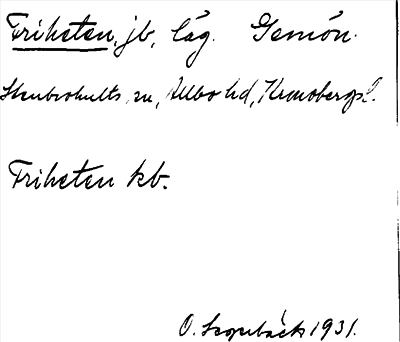 Friheten, jb, låg. Gemön.
Stenbrohults sn, Allbo hd, Kronobergs l.
Friheten kb.
O. 1931.